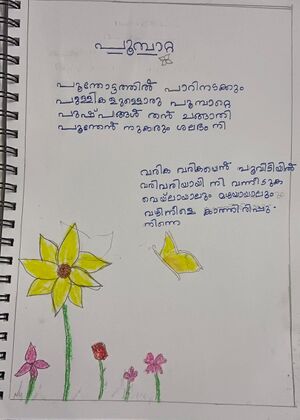 പൂമ്പാറ്റ
പൂന്തോട്ടത്തിൽ പാറിനടക്കും
പുള്ളികളുള്ളൊരു പൂമ്പാറ്റെ
പുഷ്പങ്ങൾ തൻ ചങ്ങാതി
പൂന്തേൻ നുകരും ശലഭം നി
വരിക വരികയെൻ പൂവീട്ടിൽ
വരിവരിയായി നി വന്നീടുക
വെയ്ലായാലും മഴയായാലും
വഴിനിളെ കാത്തിരിപ്പു.
നിന്നെ